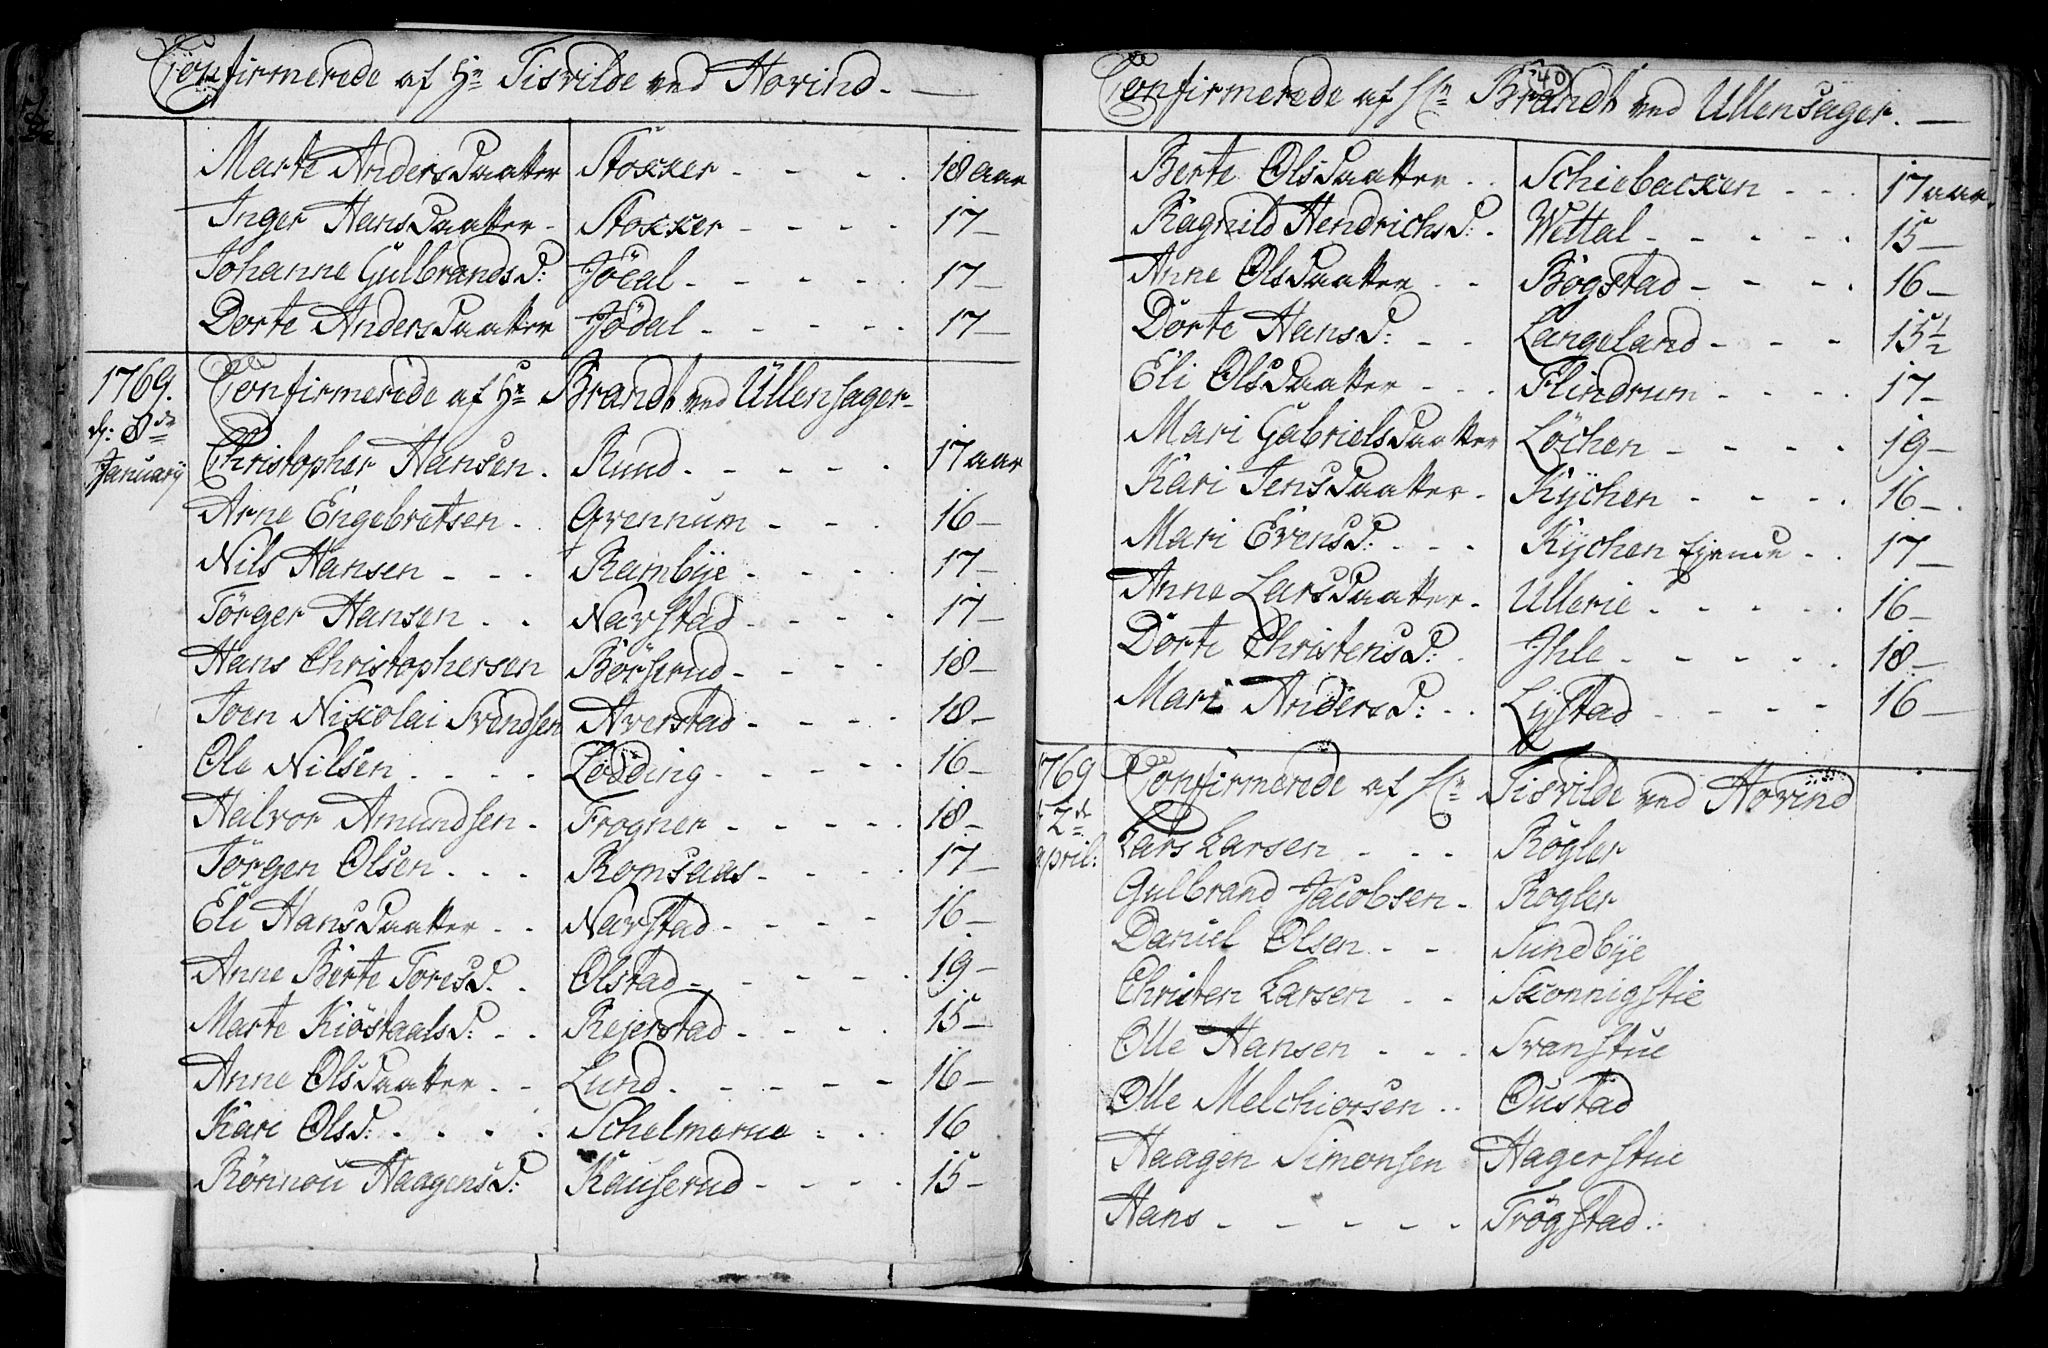 Confirmerede af Hr Tisvilde ved Hovind. —
Marte Andersdaatter Stokker - - - . 18 aar
Inger Hansdaatter - Stokker - - - . 17 —
Johanne Gulbrandsd: Jödal - - - - . 17 —
Dorte Andersdaatter Jödal - - - - . 17 —
1769. Confirmerede af Hr Brandt ved Ullensager -
d: 8de
January Christopher Hansen. Rund - - - - . 17 aar
Arne Engebretsen - Grennum - - . 16 —
Nils Hansen - - . Rambÿe - - - . 17 —
Törger Hansen . . Navstad - - - . 17 —
Hans Christophersen Börserud - - - . 18 —
Joen Nikolai Svendsen Averstad - - - . 18 —
Ole Nilsen . - - . Lödding - - - - . 16 —
Halvor Amundsen - Frogner - - - - . 18 —
Jörgen Olsen . . . Romsaas - - - . 17 —
Eli Hansdaatter . . Navstad - - - 16 —
Anne Berte Toresd. . Olstad - - - - . 19 —
Marte Kiöstaalsd: - . Rejerstad - - - . 15 —
Anne Olsdaatter - - Lund - - - - - 16 —
Kari Olsd: . - - . Schelmerud - . . 16
Rönnou Haagensd: Kauserud - - - . 15 —
40
Confirmerede af Hr Brandt ved Ullensager. —
Berte Olsdaatter . . Schiebacken - - . 17 aar.
Ragnild Hendrichsd: . Wettal - - - - . 15 —
Anne Olsdaatter - - Bögstad - - - . 16 —
Dorte Hansd: - - Langeland - - - 15½
Eli Olsdaatter - - . Flindrum - - - . 17 —
Mari Gabrielsdaatter Löchen - - - . 19 —
Kari Jensdaatter - Kÿchen - - - . 16 —.
Mari Evensd: - - - Kÿchen Ejende - . 17 —
Anne Larsdaatter - Ullerie - - - - . 16 —
Dorte Christensd: . Ihle - - - - . 18 —
Mari Andersd: - . Lÿstad - - - - 16 —
1769 Confirmerede af Hr Tisvilde ved Hovind
2de
april: Lars Larsen - - - Rögler
Gulbrand Jacobsen - Rögler
Daniel Olsen - - Sundbÿe
Christen Larsen - - Skonnigstie
Olle Hansen - - - Svanstue
Olle Melchiorsen . . Oustad
Haagen Simonsen Hagerstue
Hans - - - - - Trögstad . .